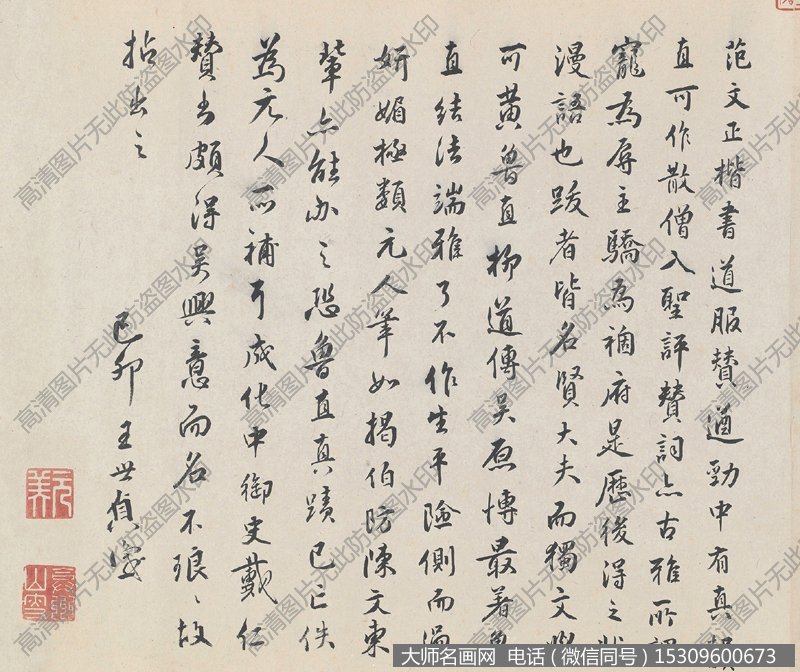 范文正楷書道服贊遒勁中有真韻
直可作散僧入聖評贊詞亦古雅所謂
寵為辱主驕為禍府是歷後得之
漫語也跋者皆名賢大夫而獨文與
可黃魯直柳道傳吳原博最著魯
直結法端雅了不作生平險側而過
妍媚極類元人筆如揭伯防陳文東
輩亦能办之恐魯直真蹟已亡佚
為元人所補耳成化中御史戴仁
贊書頗得吳興意而名不琅琅故
拈出之
己卯王世貞識
元美
大师名画网 电话（微信同号）15309600673
高清图片无此防盗图水印